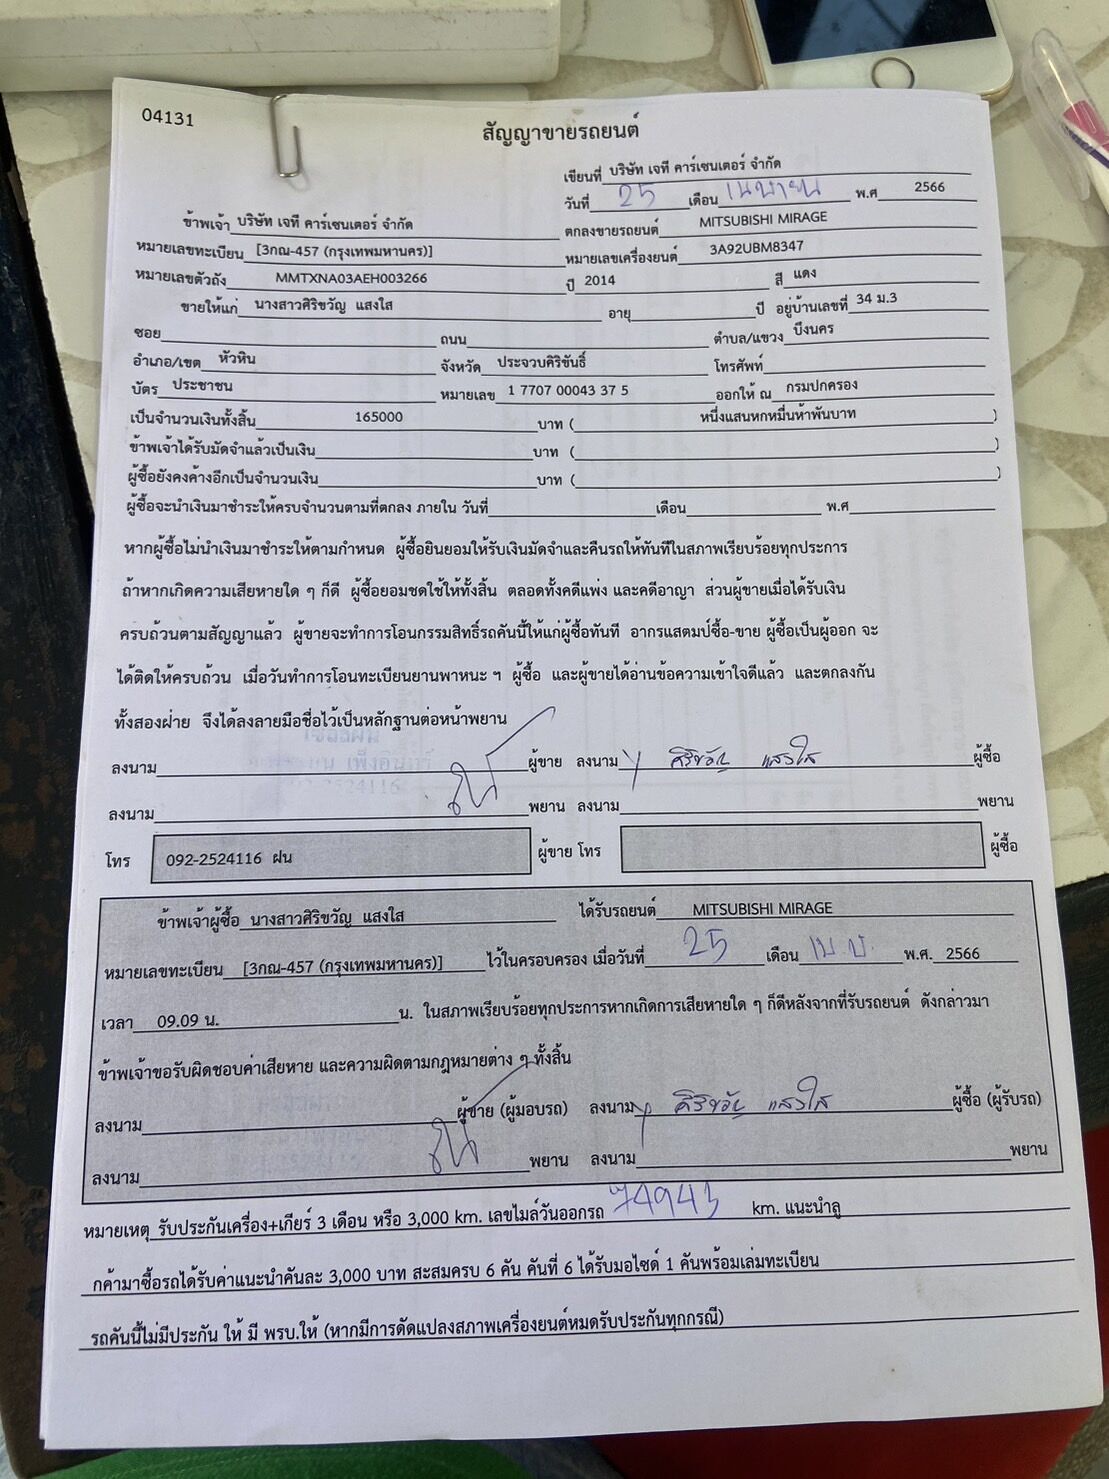 04131
สัญญาขายรถยนต์
เขียนที่ บริษัท เจที คาร์เซนเตอร์ จำกัด
วันที่ 25 เดือน เมษายน พ.ศ 2566
ข้าพเจ้า บริษัท เจที คาร์เซนเตอร์ จำกัด ตกลงขายรถยนต์ MITSUBISHI MIRAGE
หมายเลขทะเบียน [3กณ-457 (กรุงเทพมหานคร)] หมายเลขเครื่องยนต์ 3A92UBM8347
หมายเลขตัวถัง MMTXNA03AEH003266 ปี 2014 สี แดง
ขายให้แก่ นางสาวศิริขวัญ แสงใส อายุ ปี อยู่บ้านเลขที่ 34 ม.3
ซอย ถนน ตำบล/แขวง บึงนคร
อำเภอ/เขต หัวหิน จังหวัด ประจวบคิริขันธิ์ โทรศัพท์
บัตร ประชาชน หมายเลข 1 7707 00043 37 5 ออกให้ ณ กรมปกครอง
เป็นจำนวนเงินทั้งสิ้น 165000 บาท ( หนึ่งแสนหกหมื่นห้าพันบาท )
ข้าพเจ้าได้รับมัดจำแล้วเป็นเงิน บาท ( )
ผู้ซื้อยังคงค้างอีกเป็นจำนวนเงิน บาท ( )
ผู้ซื้อจะนำเงินมาชำระให้ครบจำนวนตามที่ตกลง ภายใน วันที่ เดือน พ.ศ
หากผู้ซื้อไม่นำเงินมาชำระให้ตามกำหนด ผู้ซื้อยินยอมให้รับเงินมัดจำและคืนรถให้ทันทีในสภาพเรียบร้อยทุกประการ
ถ้าหากเกิดความเสียหายใด ๆ ก็ดี ผู้ซื้อยอมชดใช้ให้ทั้งสิ้น ตลอดทั้งคดีแพ่ง และคดีอาญา ส่วนผู้ขายเมื่อได้รับเงิน
ครบถ้วนตามสัญญาแล้ว ผู้ขายจะทำการโอนกรรมสิทธิ์รถคันนี้ให้แก่ผู้ซื้อทันที อากรแสตมป์ซื้อ-ขาย ผู้ซื้อเป็นผู้ออก จะ
ได้ติดให้ครบถ้วน เมื่อวันทำการโอนทะเบียนยานพาหนะ ฯ ผู้ซื้อ และผู้ขายได้อ่านข้อความเข้าใจดีแล้ว และตกลงกัน
ทั้งสองฝ่าย จึงได้ลงลายมือชื่อไว้เป็นหลักฐานต่อหน้าพยาน
ลงนาม ผู้ขาย ลงนาม ศิริขวัญ แสงใส ผู้ซื้อ
ลงนาม พยาน ลงนาม พยาน
โทร 092-2524116 ฝน ผู้ขาย โทร ผู้ซื้อ
ข้าพเจ้าผู้ซื้อ นางสาวศิริขวัญ แสงใส ได้รับรถยนต์ MITSUBISHI MIRAGE
หมายเลขทะเบียน [3กณ-457 (กรุงเทพมหานคร)] ไว้ในครอบครอง เมื่อวันที่ 25 เดือน เม.ย. พ.ศ. 2566
เวลา 09.09 น. น. ในสภาพเรียบร้อยทุกประการหากเกิดการเสียหายใด ๆ ก็ดีหลังจากที่รับรถยนต์ ดังกล่าวมา
ข้าพเจ้าขอรับผิดชอบค่าเสียหาย และความผิดตามกฎหมายต่าง ๆ ทั้งสิ้น
ลงนาม ผู้ขาย (ผู้มอบรถ) ลงนาม ศิริขวัญ แสงใส ผู้ซื้อ (ผู้รับรถ)
ลงนาม พยาน ลงนาม พยาน
หมายเหตุ รับประกันเครื่อง+เกียร์ 3 เดือน หรือ 3,000 km. เลขไมล์วันออกรถ 74943 km. แนะนำลู
กค้ามาซื้อรถได้รับค่าแนะนำคันละ 3,000 บาท สะสมครบ 6 คัน คันที่ 6 ได้รับมอไซด์ 1 คันพร้อมเล่มทะเบียน
รถคันนี้ไม่มีประกัน ให้ มี พรบ.ให้ (หากมีการดัดแปลงสภาพเครื่องยนต์หมดรับประกันทุกกรณี)